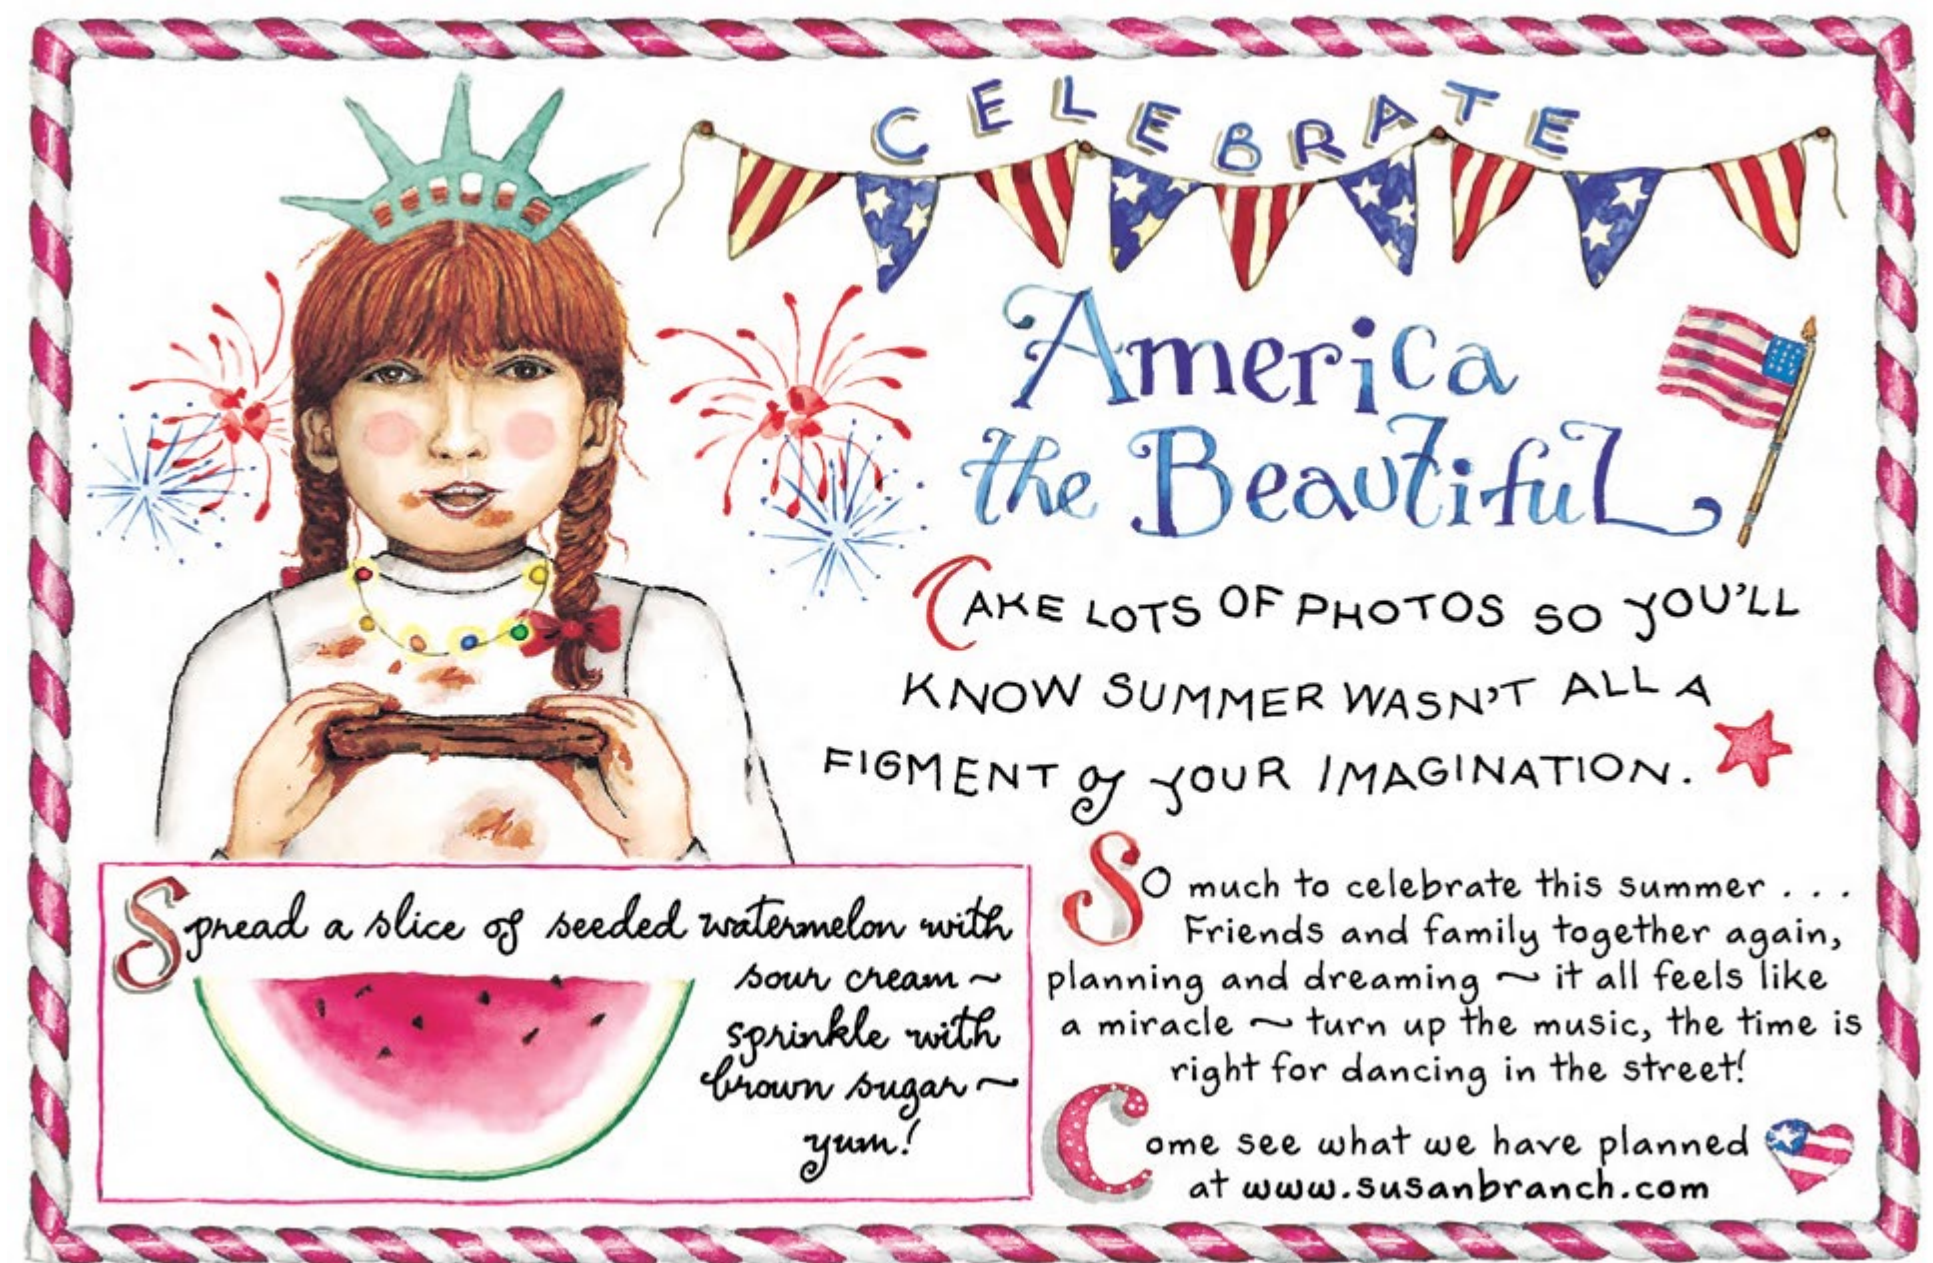 CELEBRATE
America
the Beautiful
TAKE LOTS OF PHOTOS SO YOU'LL
KNOW SUMMER WASN'T ALL A
FIGMENT of YOUR IMAGINATION.
Spread a slice of seeded watermelon with
sour cream ~
sprinkle with
brown sugar ~
yum!
So much to celebrate this summer . . .
Friends and family together again,
planning and dreaming ~ it all feels like
a miracle ~ turn up the music, the time is
right for dancing in the street!
Come see what we have planned
at www.susanbranch.com